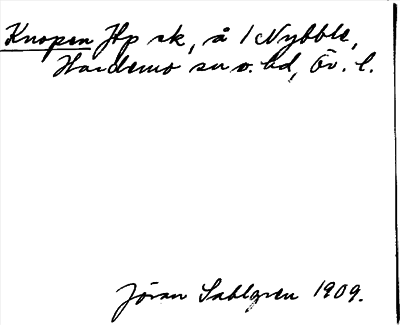 Knopen Jfp sk, å 1 Nybble,
Hardemo sn o. hd, Ör. l.
Jöran Sahlgren 1909.